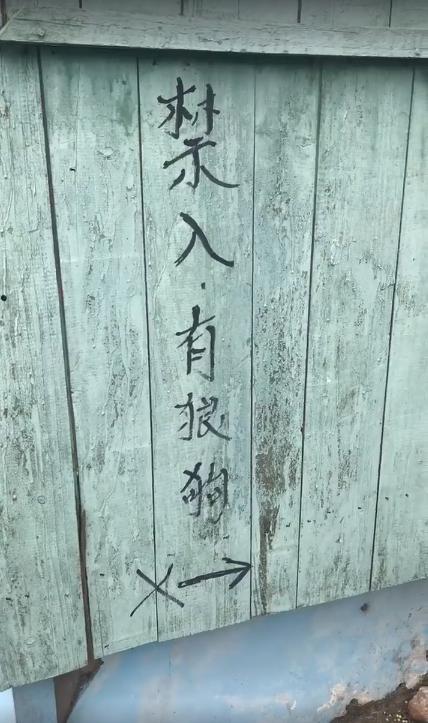 禁入·有狼狗
X→